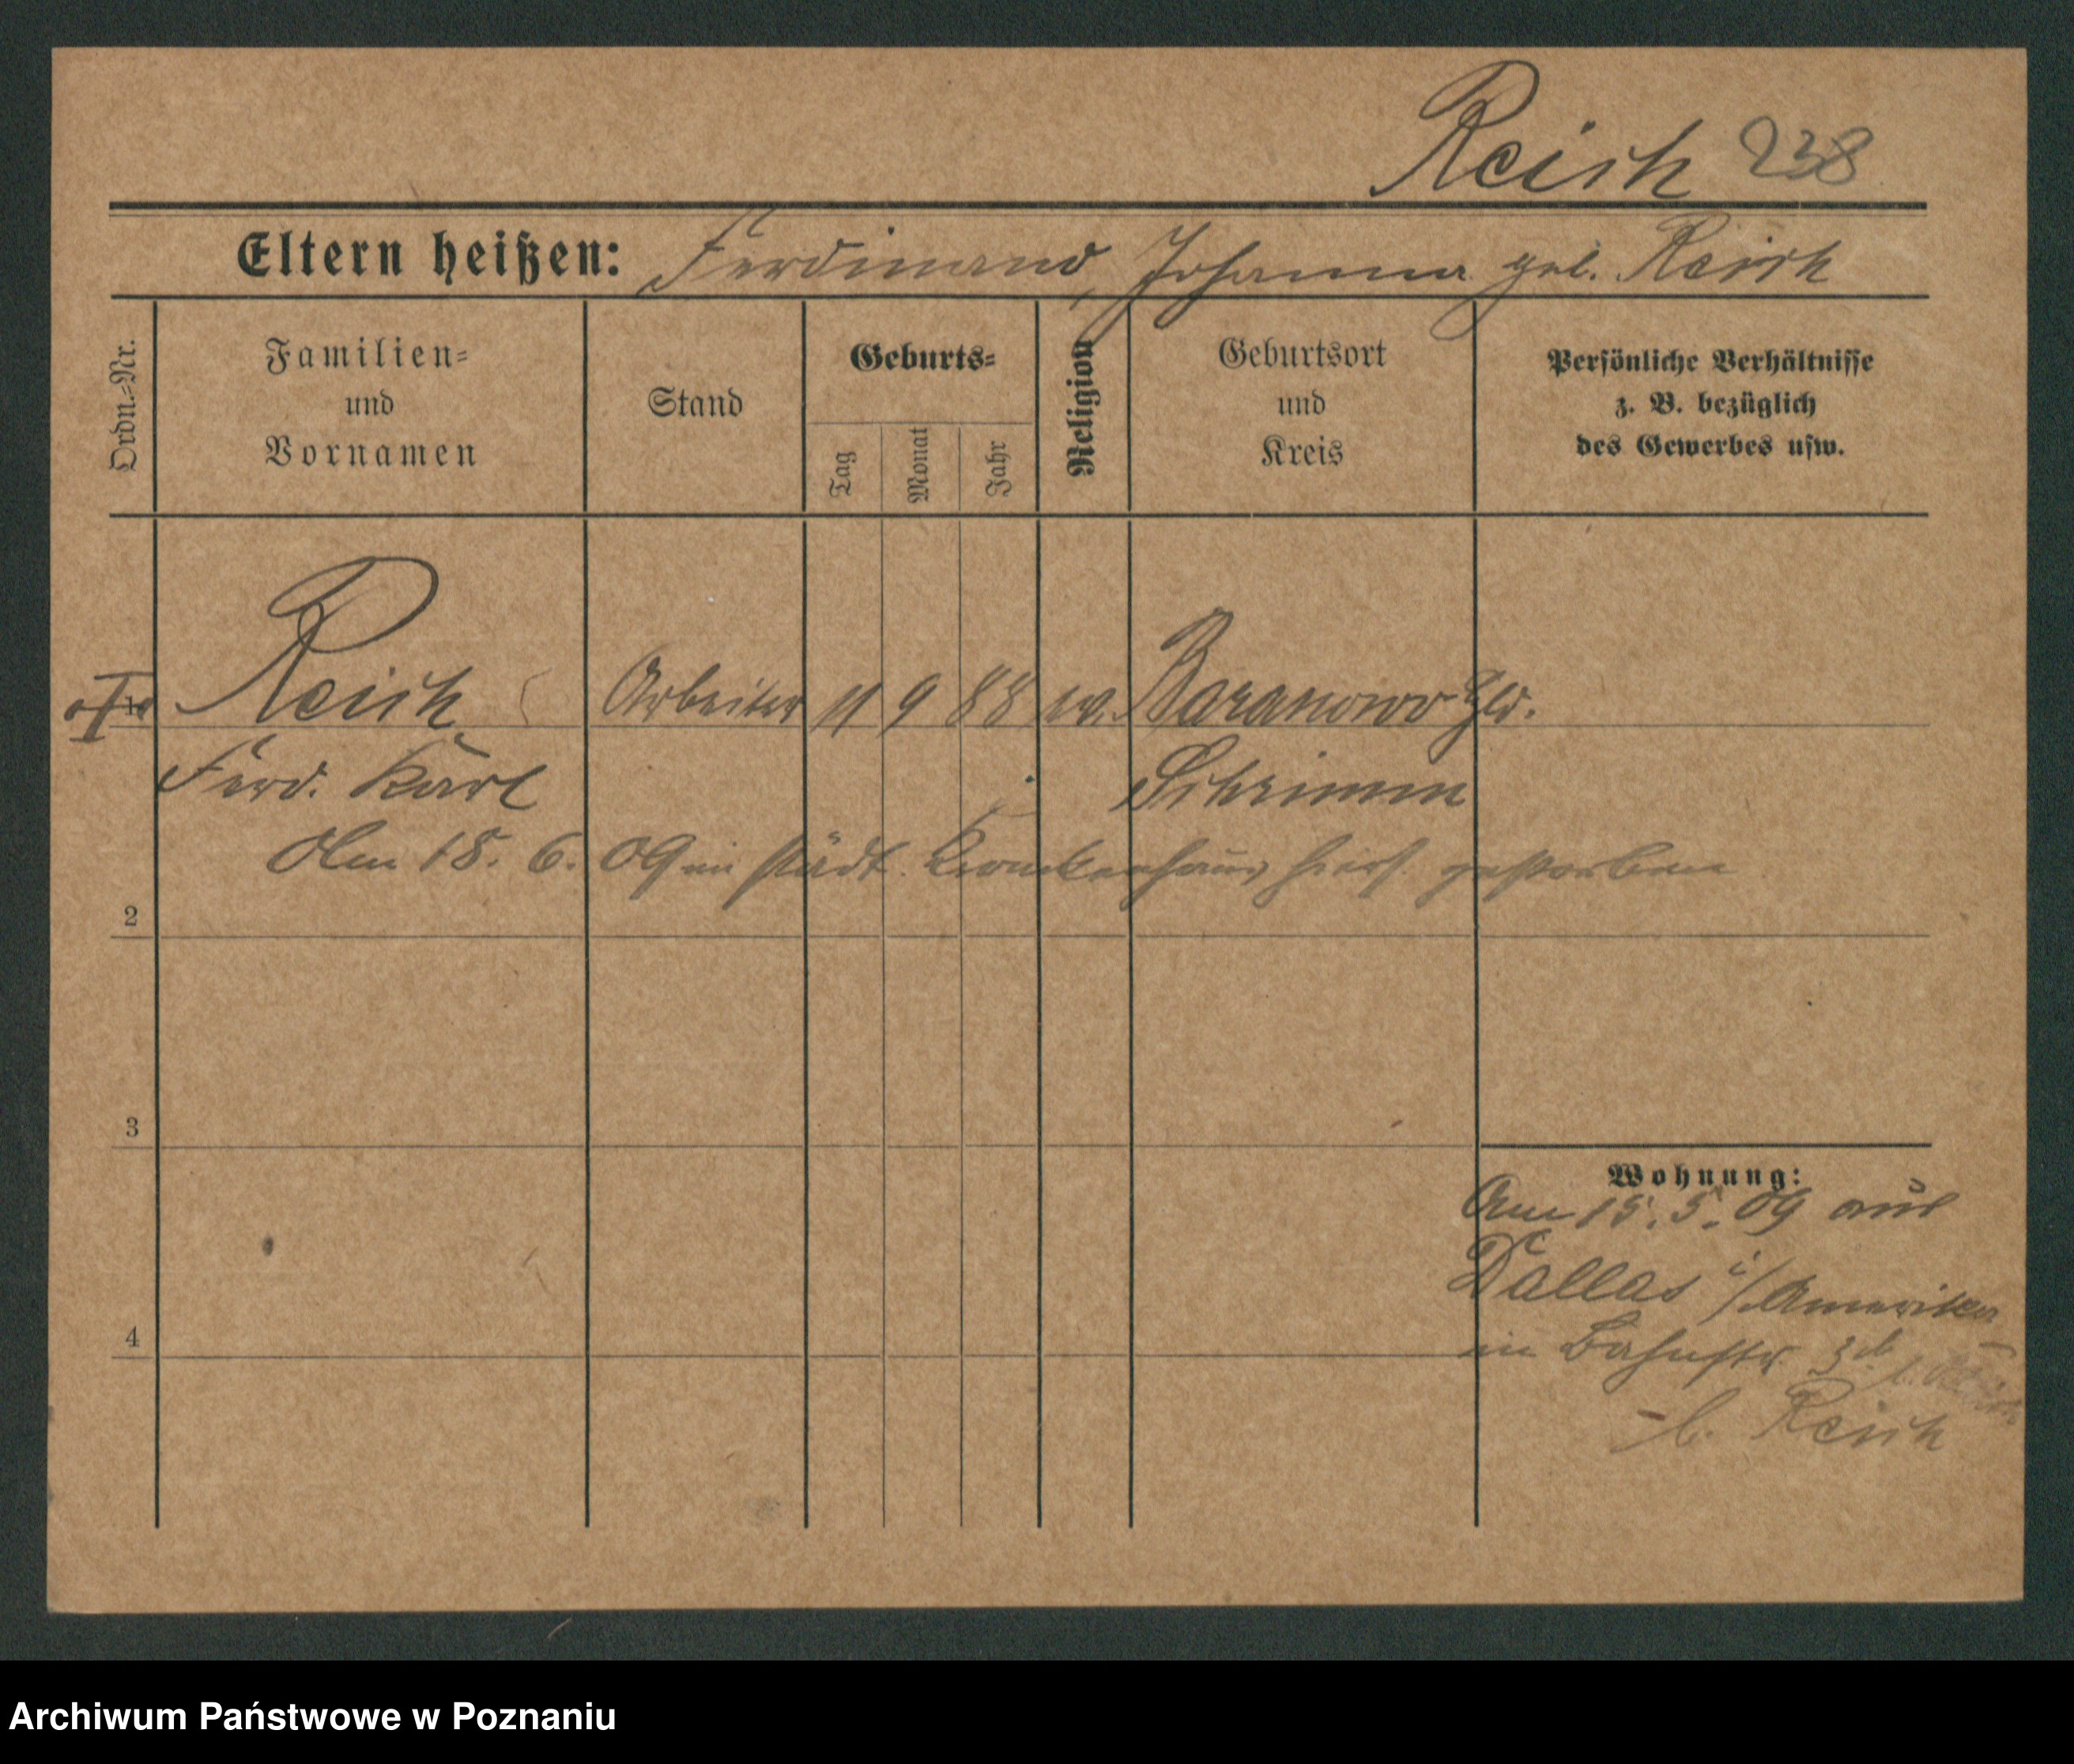 Reich 238
Eltern heißen: Ferdinand, Johanna geb. Reich
Ordn.=Nr.
Familien=
und
Vornamen
Stand
Geburts=
Tag
Monat
Jahr
Religion
Geburtsort
und
Kreis
Persönliche Verhältnisse
z. B. bezüglich
des Gewerbes usw.
Reich Arbeiter 11 9 88 ev. Baranowo Hld.
Ferd. Karl Schrimm
Am 18. 6. 09 im städt. Krankenhaus hiers. gestorben
2
3
4
Wohnung:
Am 15. 5. 09 aus
Dallas i/Amerika
in Bahnstr 3d
b. Reich
Archiwum Państwowe w Poznaniu